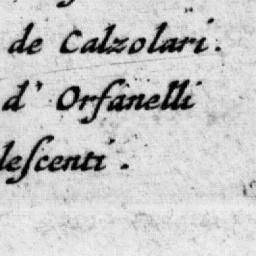 de Calzolari.
d' Orfanelli
leſcenti.